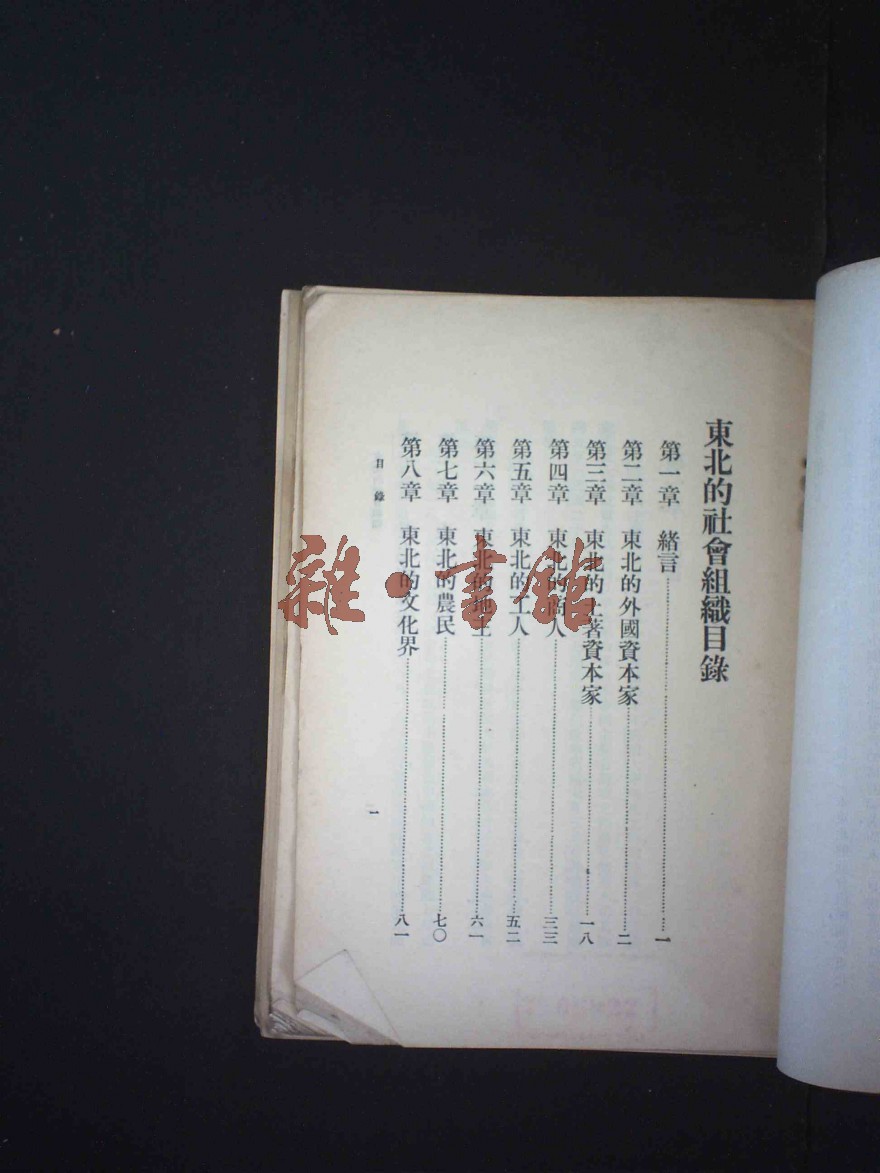 東北的社會組織目錄
第一章　緒言…………一
第二章　東北的外國資本家…………二
第三章　東北的土著資本家…………一八
第四章　東北的商人…………三三
第五章　東北的工人…………五二
第六章　東北的地主…………六一
第七章　東北的農民…………七〇
第八章　東北的文化界…………八一
目錄
一
雜·書館